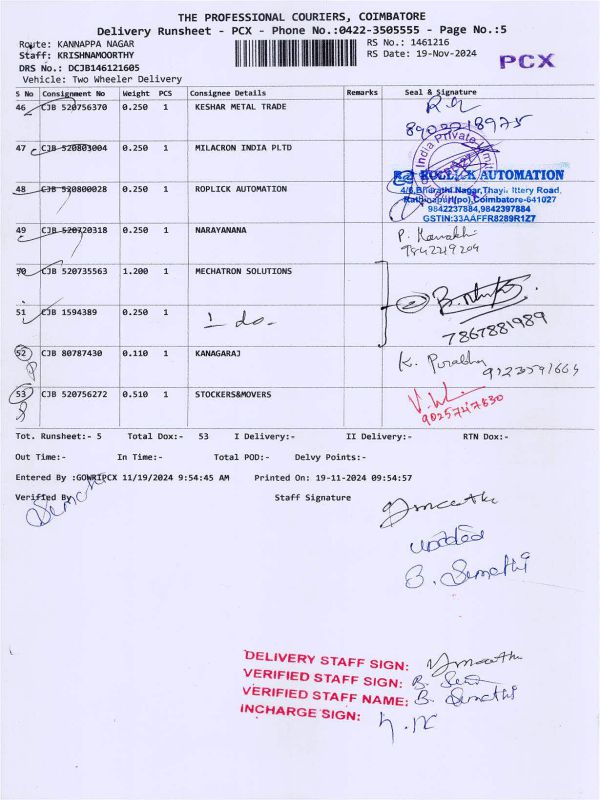 THE PROFESSIONAL COURIERS, COIMBATORE
Delivery Runsheet - PCX - Phone No.:0422-3505555 - Page No.:5
Route: KANNAPPA NAGAR
RS No.: 1461216
Staff: KRISHNAMOORTHY
RS Date: 19-Nov-2024
PCX
DRS No.: DCJB146121605
Vehicle: Two Wheeler Delivery
S No Consignment No Weight PCS Consignee Details Remarks Seal & Signature
46 CJB 520756370 0.250 1 KESHAR METAL TRADE
8903718975
47 CJB 520803004 0.250 1 MILACRON INDIA PLTD
India Private Limited
48 CJB 520800028 0.250 1 ROPLICK AUTOMATION
AUTOMATION
4/6,Bharathi Nagar,Thayir Ittery Road,
Rathinapuri(po),Coimbatore-641027
9842237884,9842397884
GSTIN:33AAFFR8289R1Z7
49 CJB 520720318 0.250 1 NARAYANANA
50 CJB 520735563 1.200 1 MECHATRON SOLUTIONS
51 CJB 1594389 0.250 1
7867881989
52 CJB 80787430 0.110 1 KANAGARAJ
53 CJB 520756272 0.510 1 STOCKERS&MOVERS
9025747630
Tot. Runsheet:- 5 Total Dox:- 53 I Delivery:- II Delivery:- RTN Dox:-
Out Time:- In Time:- Total POD:- Delvy Points:-
Entered By :GOWRIPCX 11/19/2024 9:54:45 AM Printed On: 19-11-2024 09:54:57
Verified By Staff Signature
B. Sumathi
DELIVERY STAFF SIGN:
VERIFIED STAFF SIGN:
VERIFIED STAFF NAME: B. Sumathi
INCHARGE SIGN: